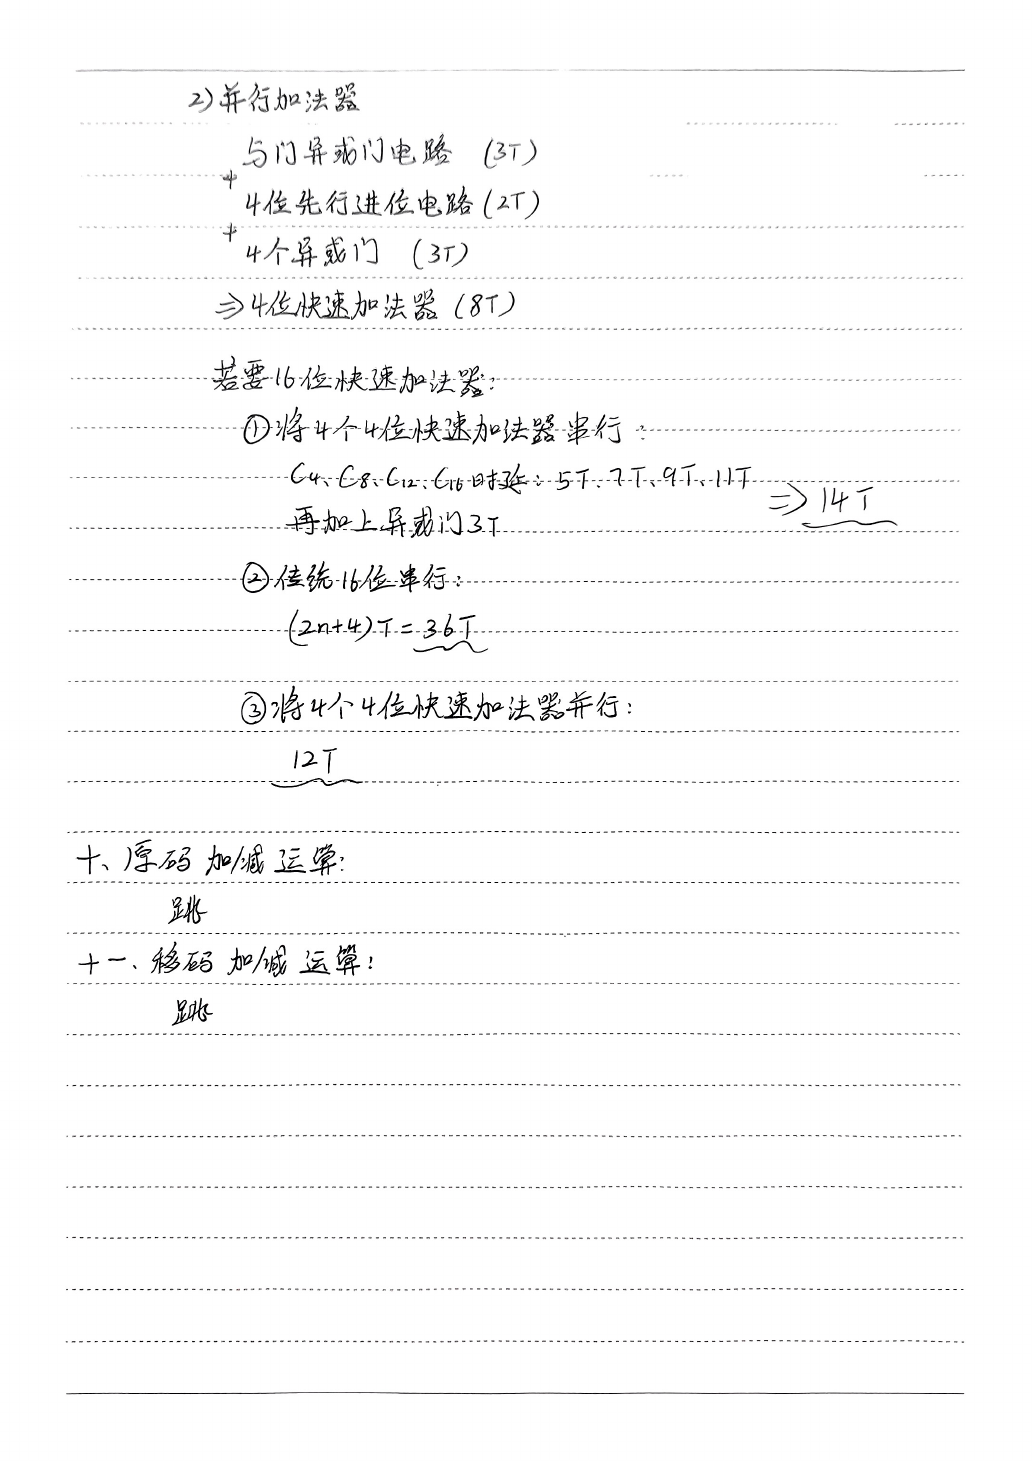 2)并行加法器
与门异或门电路 (3T)
+
4位先行进位电路(2T)
+
4个异或门 (3T)
⇒4位快速加法器(8T)
若要16位快速加法器:
①将4个4位快速加法器串行:
C4、C8、C12、C16时延:5T、7T、9T、11T
再加上异或门3T
⇒14T
②传统16位串行:
(2n+4)T=36T
③将4个4位快速加法器并行:
12T
十、原码 加/减 运算:
跳
十一、移码 加/减 运算:
跳